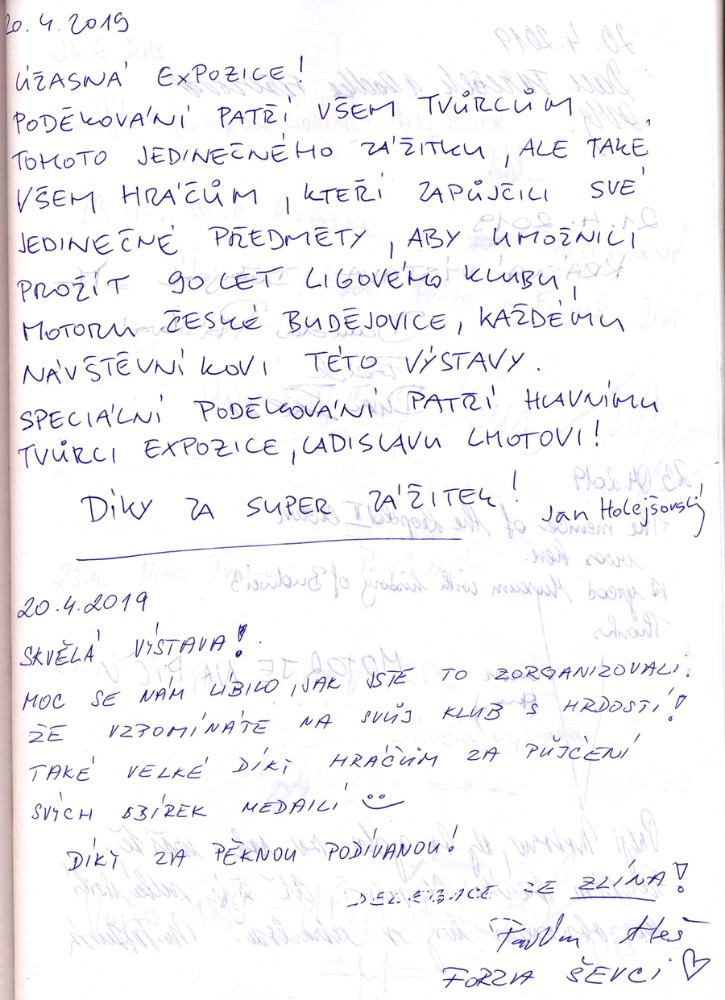 20.4.2019
ÚŽASNÁ EXPOZICE!
PODĚKOVÁNÍ PATŘÍ VŠEM TVŮRCŮM
TOHOTO JEDINEČNÉHO ZÁŽITKU, ALE TAKÉ
VŠEM HRÁČŮM, KTEŘÍ ZAPŮJČILI SVÉ
JEDINEČNÉ PŘEDMĚTY, ABY UMOŽNILI
PROŽÍT 90 LET LIGOVÉHO KLUBU,
MOTORU ČESKÉ BUDĚJOVICE, KAŽDÉMU
NÁVŠTĚVNÍKOVI TÉTO VÝSTAVY.
SPECIÁLNÍ PODĚKOVÁNÍ PATŘÍ HLAVNÍMU
TVŮRCI EXPOZICE, LADISLAVU LHOTOVI!
DÍKY ZA SUPER ZÁŽITEK!
Jan Holejšovský
20.4.2019
SKVĚLÁ VÝSTAVA!
MOC SE NÁM LÍBILO, JAK JSTE TO ZORGANIZOVALI.
ŽE VZPOMÍNÁTE NA SVŮJ KLUB S HRDOSTÍ!
TAKÉ VELKÉ DÍKY HRÁČŮM ZA PŮJČENÍ
SVÝCH SBÍREK MEDAILÍ
DÍKY ZA PĚKNOU PODÍVANOU!
DELEGACE ZE ZLÍNA!
Aleš
FORZA ŠEVCI